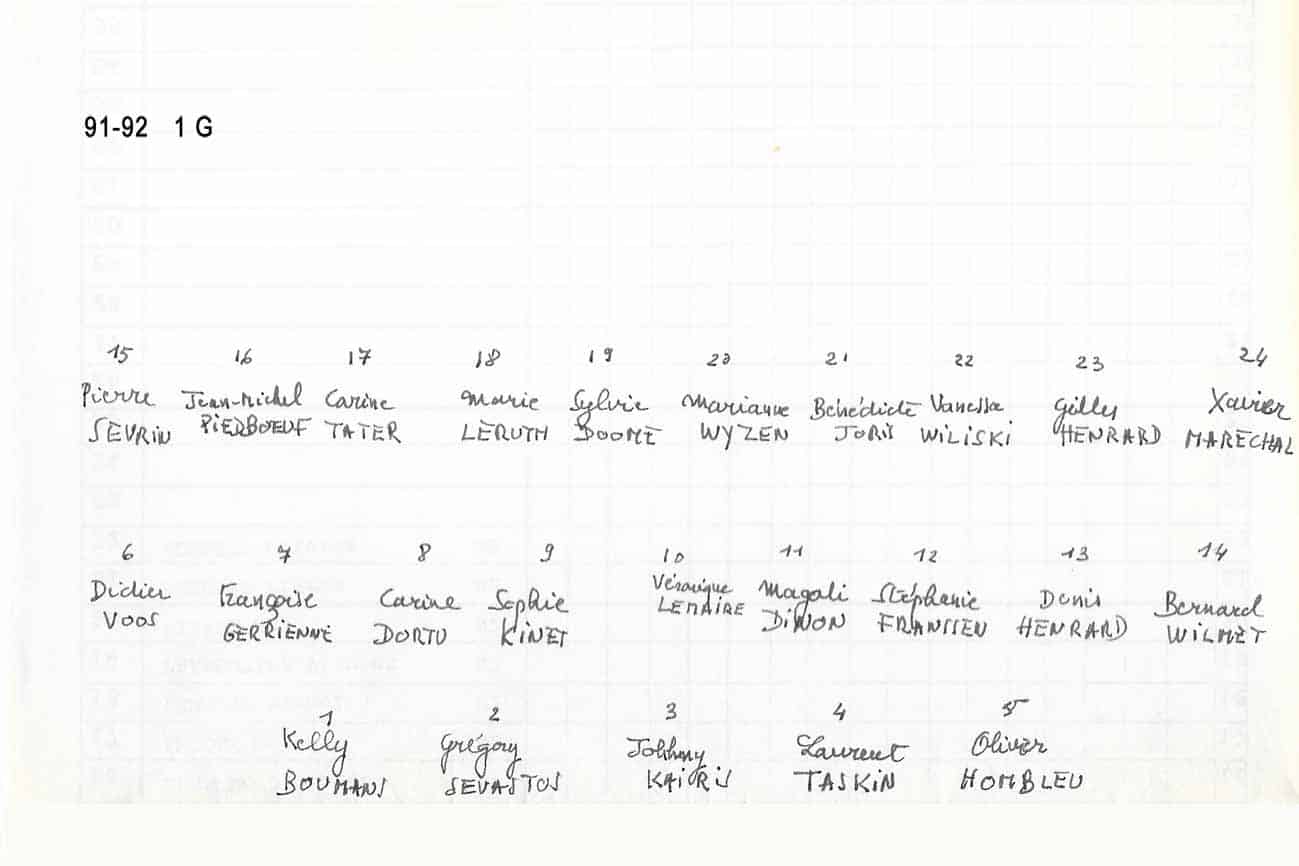 91-92 1 G
15 16 17 18 19 20 21 22 23 24
Pierre Jean-Michel Carine Marie Sylvie Marianne Bénédicte Vanessa Gilles Xavier
SEVRIN PIERBOEUF TATER LERUTH DOOME WYZEN JORIS WILISKI HENRARD MARECHAL
6 7 8 9 10 11 12 13 14
Didier Françoise Carine Sophie Véronique Magali Stéphanie Denis Bernard
VOOS GERRIENNE DORTU KINET LEMAIRE DINON FRANSSEN HENRARD WILMET
1 2 3 4 5
Kelly Grégory Johnny Laurent Olivier
BOUMANS SEVASTOS KAIRIS TASKIN HOMBLEU